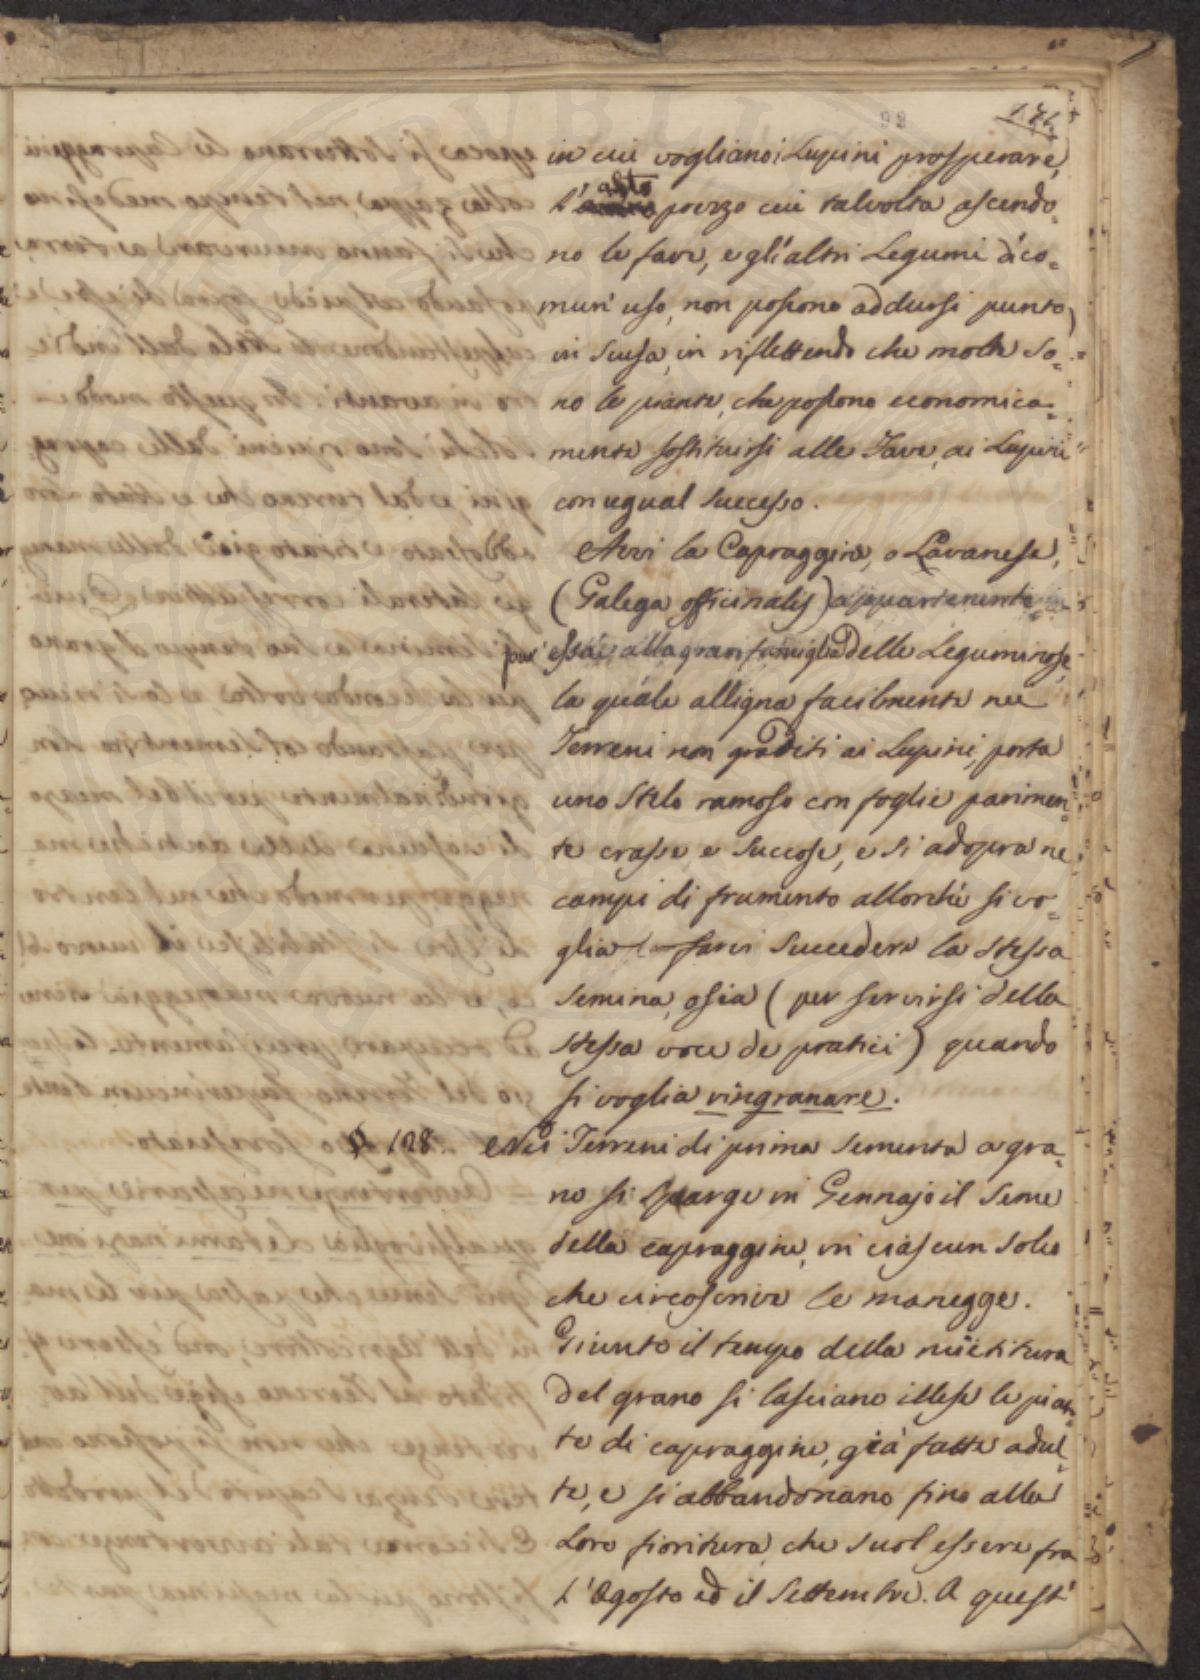 98
176
in cui vogliano i Lupini prosperare,
alto
L' prezzo cui talvolta ascendo=
no le fave, e gl'altri Legumi d'co=
mun' uso, non possono addursi punto
in scusa, in riflettendo che molte so=
no le piante, che possono economica=
mente sostituirsi alle Fave, ai Lupini
con egual successo.
Avvi la Capraggine, o Lavanese,
(Galega officinalis) appartenente
pur' essa alla gran famiglia delle Leguminose,
la quale alligna facilmente nei
Terreni non graditi ai Lupini, porta
uno stelo ramoso con foglie parimen=
te crasse e succose, e si adopra ne
campi di frumento allorchè si vo=
glia farci succedere la stessa
semina, osia (per servirsi della
stessa voce de pratici) quando
si voglia ringranare.
§ 128. Nei Terreni di prima sementa a gra=
no si sparge in Gennajo il seme
della capraggine, in ciascun solco
che circoscrive le manegge.
Giunto il tempo della mietitura
del grano si lasciano illese le pian=
te di capraggine, già fatte adul=
te, e si abbandonano fino alla
Loro fioritura, che suol essere fra
L'Agosto ed il Settembre. A quest'